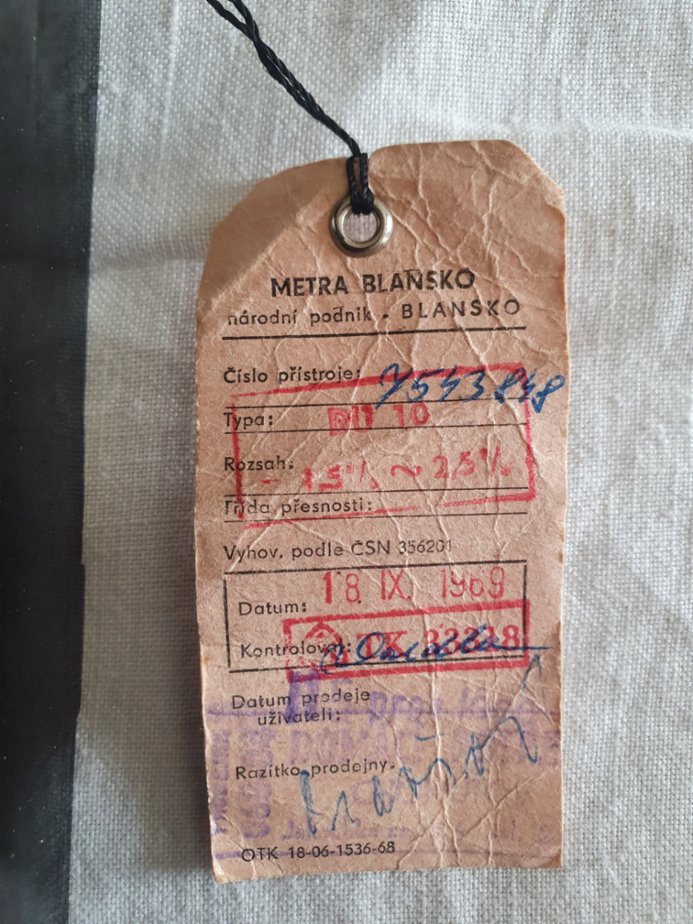 METRA BLANSKO
národní podnik - BLANSKO
Číslo přístroje: 7543848
Typa: DU 10
Rozsah:
- 1,5% ~ 2,5%
Třída přesnosti:
Vyhov. podle ČSN 356201
Datum: 18. IX. 1969
Kontroloval: OTK 33318
Datum prodeje
uživateli:
Razítko prodejny.
OTK 18-06-1536-68